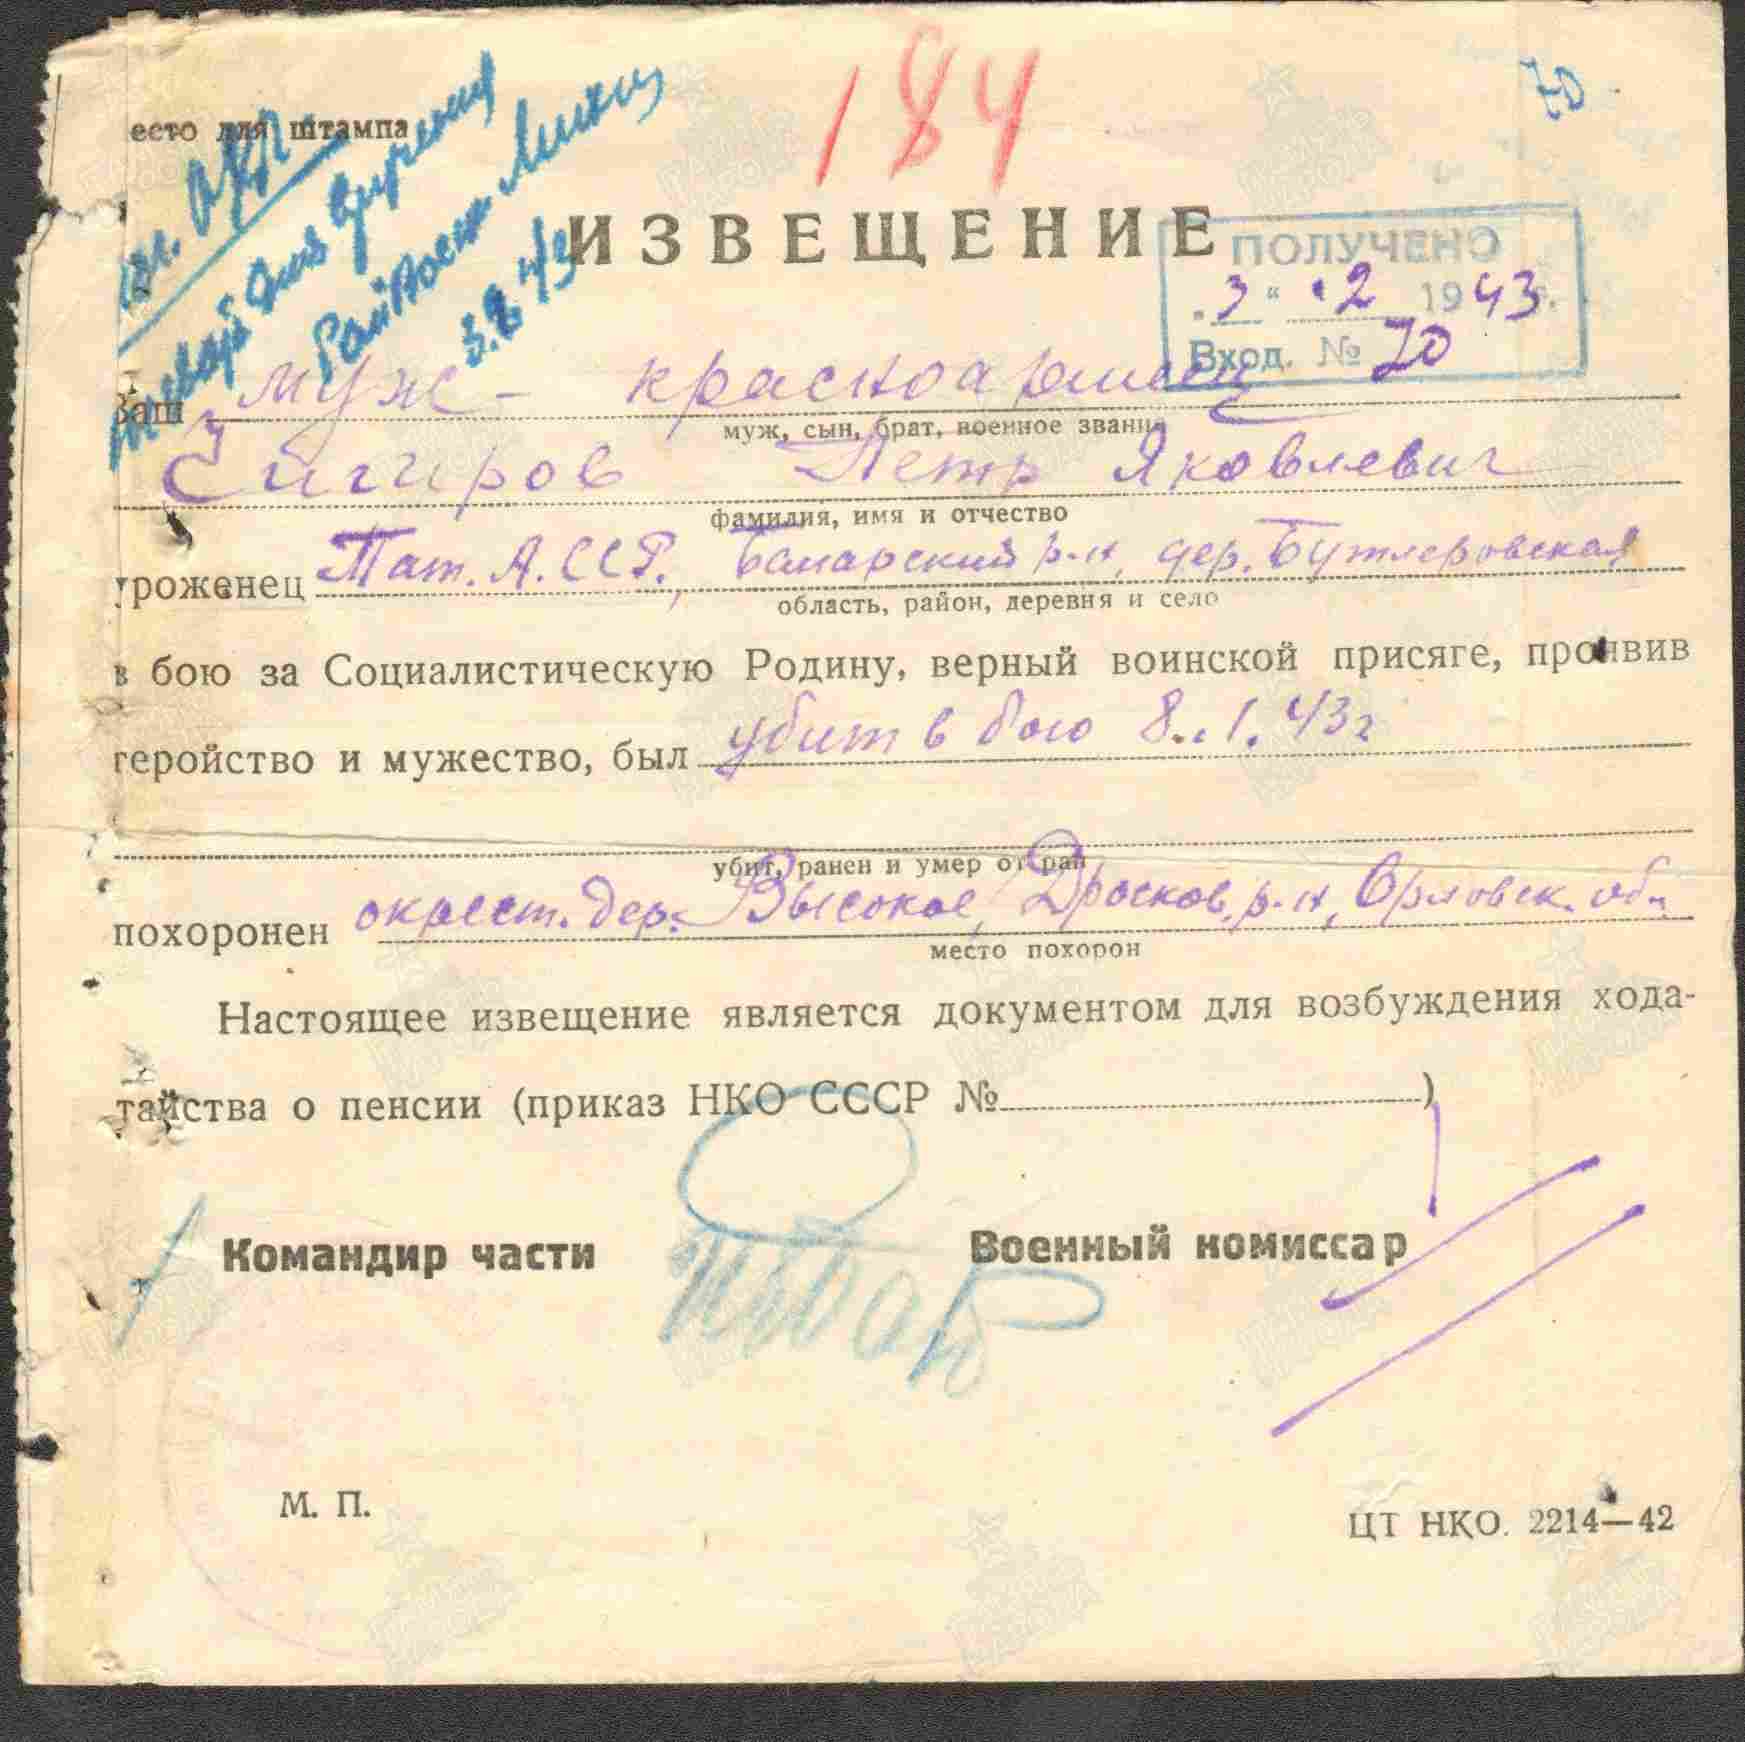 184
70
есто для штампа
3.2.43
ИЗВЕЩЕНИЕ
ПОЛУЧЕНО
"3" 2 1943 г.
Вход. № 70
Ваш муж - красноармеец
муж, сын, брат, военное звание
Чигиров Петр Яковлевич
фамилия, имя и отчество
уроженец Тат. А.ССР., р-н, дер. Бутлеровская
область, район, деревня и село
в бою за Социалистическую Родину, верный воинской присяге, проявив
геройство и мужество, был убит в бою 8.1.43г
убит, ранен и умер от ран
похоронен окрест. дер. Высокое, Дросков. р-н, Орловск. обл.
место похорон
Настоящее извещение является документом для возбуждения хода-
тайства о пенсии (приказ НКО СССР № )
Командир части Военный комиссар
М. П.
ЦТ НКО. 2214—42